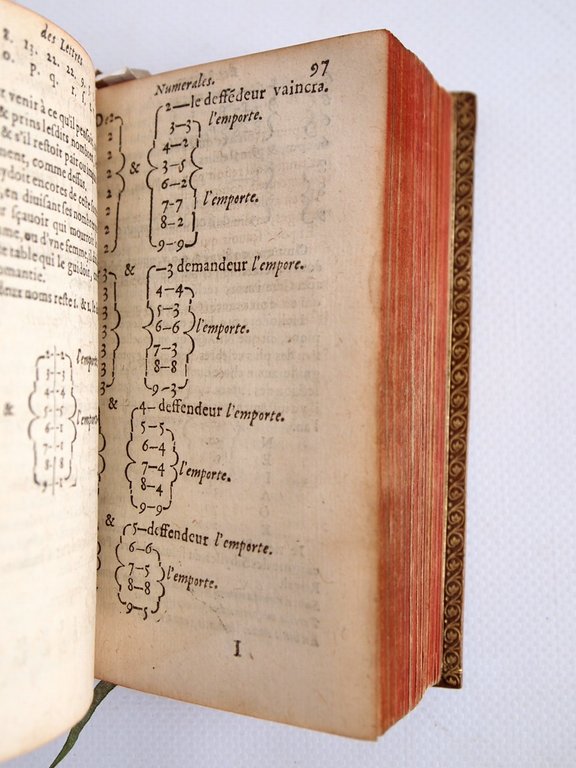 des Lettres
8. 13. 22. 22. 9. 5.
o. p. q. r. s.
venir à ce qu'il pense
& prins lesdits nombres
& s'il restoit pair ou
ment, comme dessus.
y doit encores de ceste
en diuisant ses nombres
sçauoir qui mourroit
me, ou d'vne femme, il
e table qui le gui doit,
omantie.
deux noms reste 1. & 1. le
2-2 l'emporte.
3-3
4-4
&
5-5 l'emporte
6-6
7-7
8-8
9-1
Numerales. 97
De 2 & 2—le deffédeur vaincra.
2 3-3 l'emporte.
2 4-2
2 3-5
2 6-2 l'emporte.
2 7-7
2 8-2
2 9-9
3 & —3 demandeur l'empore.
3 4-4
3 5-3
3 6-6 l'emporte.
3 7-3
3 8-8
3 9-3
& 4- deffendeur l'emporte.
5-5
6-4
7-4 l'emporte.
8-4
9-9
& 5-deffendeur l'emporte.
6-6
7-5 l'emporte.
8-8
9-5
I